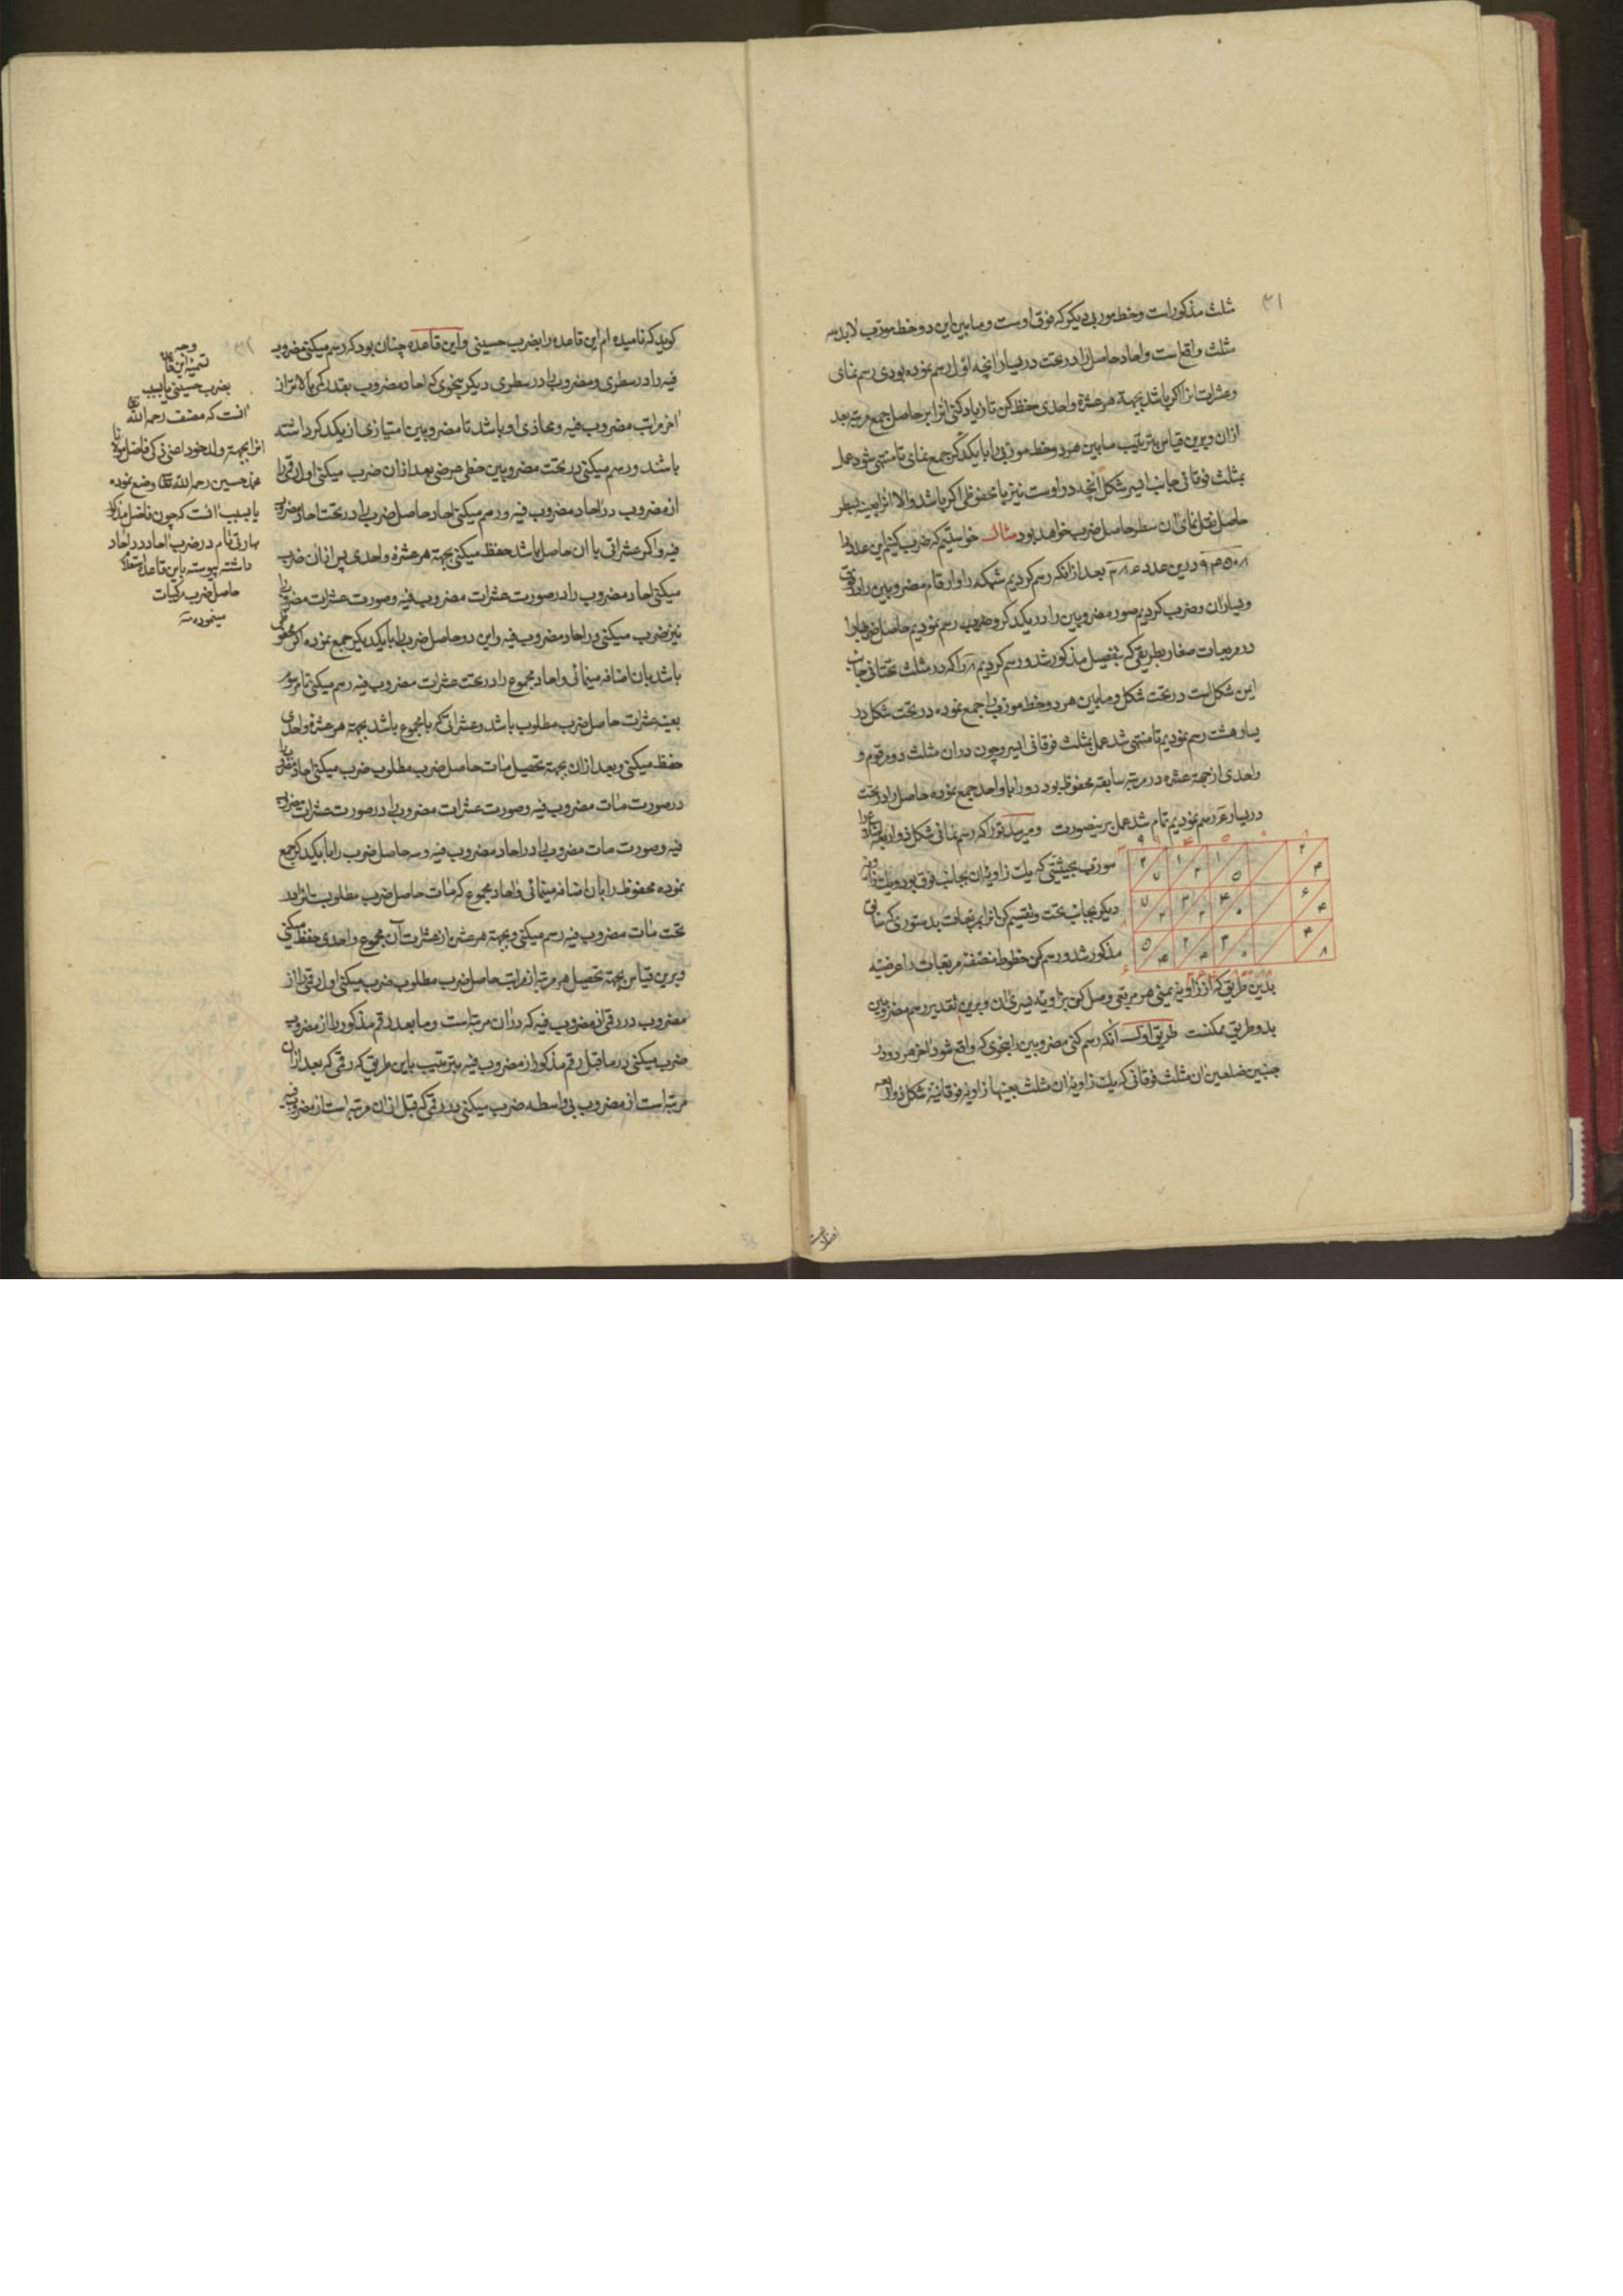 مثلث مذکور است و خط مورب دیگر که فوق اوست و ما بین این دو خط مورب لابد سه
مثلث واقع است و احاد حاصل را در تحت در یسار آنچه اول رسم نموده بودی رسم نمای
و عشرات انرا اکر باشد بجهة هر عشرة واحدی حفظ کن تا زیاد کنی انرا بر حاصل جمع مرتبه بعد
ازان و برین قیاس بترتیب ما بین هر دو خط مورب را با یکدکر جمع نمای تا منتهی شود عمل
بمثلث فوقانی جانب ایسر شکل آنچه در اوست نیز با محفوظی اکر باشد والا انرا بعینه بسطر
حاصل نقل نمای ان سطر حاصل ضرب خواهد بود مثال خواستیم که ضرب کنیم این عدد را
در این عدد بعد از انکه رسم کردیم شبکه را و ارقام مضروبین را در فوق
و یسار ان و ضرب کردیم صور مضروبین را در یکدکر و رسم نمودیم حاصل ضربها را
در مربعات صغار بطریقی که بتفصیل مذکور شد و رسم کردیم ۸ را که در مثلث تحتانی جانب
ایمن شکل است در تحت شکل و ما بین هر دو خط مورب را جمع نموده در تحت شکل در
یسار هشت رسم نمودیم تا منتهی شد عمل بمثلث فوقانی ایسر و چون دران مثلث دو مرقوم و
واحدی از جهة عشره در مرتبه سابقه محفوظ بود دو را با واحد جمع نموده حاصل را در تحت
در یسار رسم نمودیم تمام شد عمل برینصورت و میرسد تو را که رسم نمائی شکل ذو اربعة اضلاع را
مورب بحیثیتی که یک زاویه ان بجانب فوق بود و یک زاویه
دیکر بجانب تحت و تقسیم کن انرا بمربعات بدستوری که سابق
مذکور شد و رسم کن خطوط منصفه مربعات را عرضیه
۲ ۷ ۱ ۲ ۱ ۵ ۲ ۴
۷ ۲ ۳ ۲ ۴ ۰ ۶ ۴
۵ ۴ ۲ ۴ ۳ ۰ ۴ ۸
بدین طریق که از زاویه یمنی هر مربعی وصل کن بزاویه یسری ان و برین تقدیر رسم مضروبین
بدو طریق ممکنست طریق اول انکه رسم کنی مضروبین را بنحوی که واقع شود اخر هر دو در
جنبین ضلعین ان مثلث فوقانی که یک زاویه ان مثلث بعینها زاویه فوقانیة شکل ذو اربعه
کوید که نامیده ام این قاعده را بضرب حسینی و این قاعده چنان بود که رسم میکنی مضروب
فیه را در سطری و مضروب را در سطری دیکر بنحوی که احاد مضروب بقدر رقمی بالاتر از
اخر مراتب مضروب فیه و محاذی او باشد تا مضروبین امتیازی از یکدکر داشته
باشد و رسم میکنی در تحت مضروبین خطی عرضی بعد ازان ضرب میکنی اول رقم را
از مضروب در احاد مضروب فیه و رسم میکنی احاد حاصل ضرب را در تحت احاد مضروب
فیه و اکر عشراتی با ان حاصل باشد حفظ میکنی بجهة هر عشرة واحدی پس ازان ضرب
میکنی احاد مضروب را در صورت عشرات مضروب فیه و صورت عشرات مضروب را
نیز ضرب میکنی در احاد مضروب فیه و این دو حاصل ضرب را با یکدیکر جمع نموده اکر محفوظی
باشد بان اضافه مینمائی و احاد مجموع را در تحت عشرات مضروب فیه رسم میکنی تا مرسوم
بعینه عشرات حاصل ضرب مطلوب باشد و عشراتی که با مجموع باشد بجهة هر عشرة واحدی
حفظ میکنی و بعد ازان بجهة تحصیل مئات حاصل ضرب مطلوب ضرب میکنی احاد مضروب را
در صورت مئات مضروب فیه و صورت عشرات مضروب را در صورت عشرات مضروب
فیه و صورت مئات مضروب را در احاد مضروب فیه و سه حاصل ضرب را با یکدکر جمع
نموده محفوظ را بان اضافه مینمائی و احاد مجموع که مئات حاصل ضرب مطلوبست در
تحت مئات مضروب فیه رسم میکنی و بجهة هر عشره از عشرات آن مجموع واحدی حفظ میکنی
و برین قیاس بجهة تحصیل هر مرتبه از مراتب حاصل ضرب مطلوب ضرب میکنی اول رقم را از
مضروب در رقمی از مضروب فیه که دران مرتبه است و ما بعد رقم مذکور را از مضروب
ضرب میکنی در ما قبل رقم مذکور از مضروب فیه بترتیب باین طریق که رقمی که بعد ازان
مرتبه است از مضروب بی واسطه ضرب میکنی در رقمی که قبل ازان مرتبه است از مضروب فیه
وجه
تسمیة این قاعده
بضرب حسینی یا بسبب
انست که مصنف رحمه الله
انرا بجهة ولد خود اعنی فاضل مولانا
محمد حسین رحمه الله وضع نموده
یا بسبب انست که چون فاضل مذکور
مهارتی تام در ضرب احاد در احاد
داشته پیوسته باین قاعده
حاصل ضرب مرکبات
مینموده